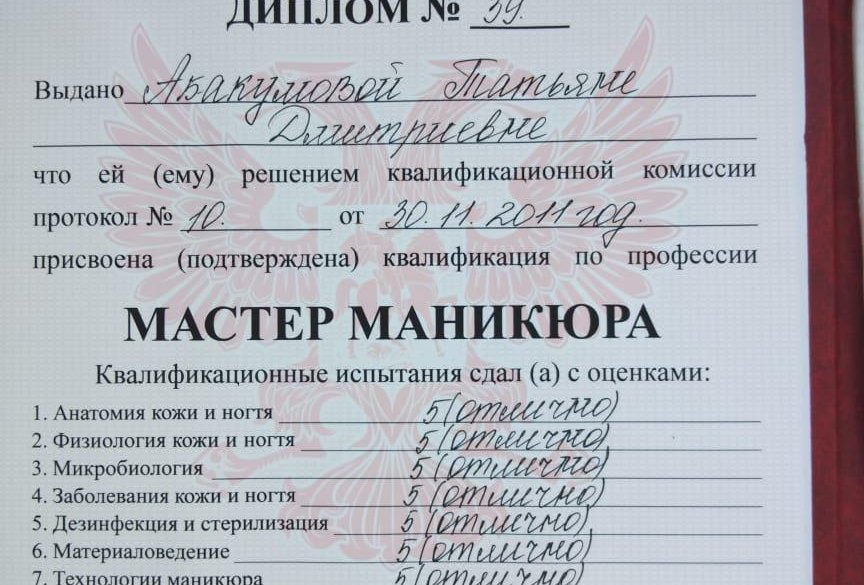 ДИПЛОМ № 39.
Выдано Абакумовой Татьяне
Дмитриевне
что ей (ему) решением квалификационной комиссии
протокол № 10. от 30.11.2011 год.
присвоена (подтверждена) квалификация по профессии
МАСТЕР МАНИКЮРА
Квалификационные испытания сдал (а) с оценками:
1. Анатомия кожи и ногтя 5 (отлично)
2. Физиология кожи и ногтя 5 (отлично)
3. Микробиология 5 (отлично)
4. Заболевания кожи и ногтя 5 (отлично)
5. Дезинфекция и стерилизация 5 (отлично)
6. Материаловедение 5 (отлично)
7. Технологии маникюра 5 (отлично)